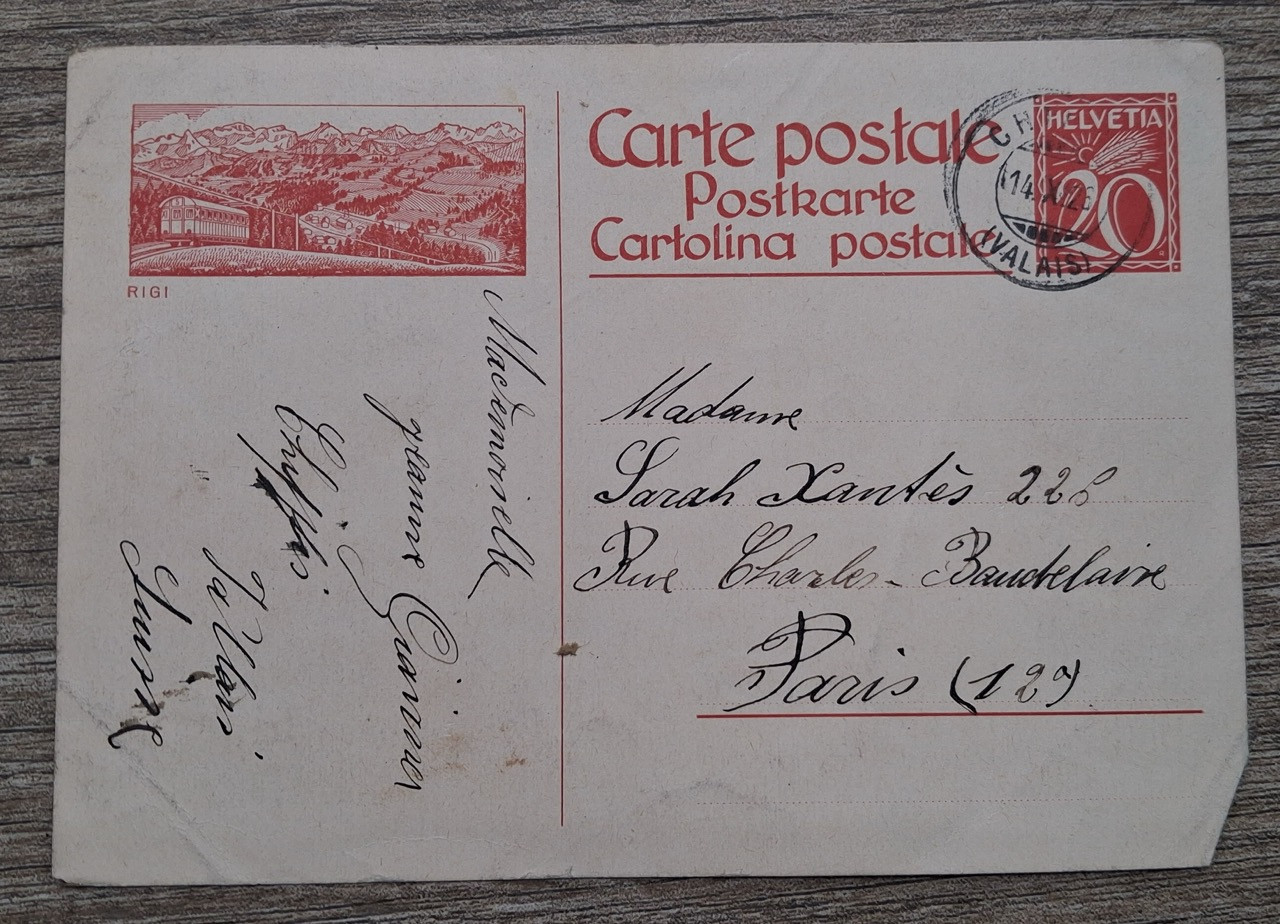 RIGI
Carte postale
Postkarte
Cartolina postale
HELVETIA
20
(VALAIS)
Mademoiselle
Jeanne
Suisse
Madame
Sarah Xantès 22
Rue Charles-Baudelaire
Paris (12e)